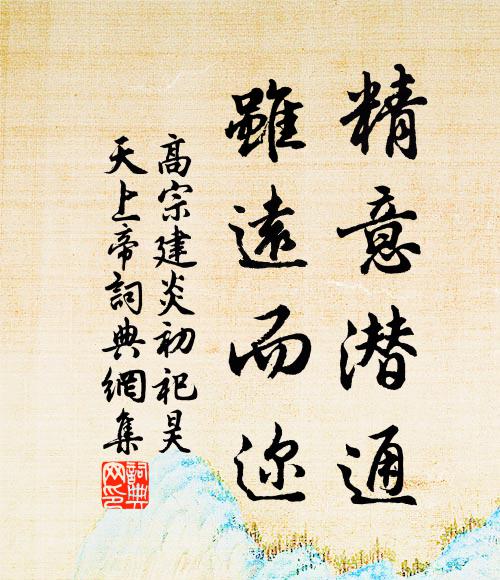 精意潜通
雖遠而迩
高宗建炎初祀昊
天上帝詞典網集
詞典
网印